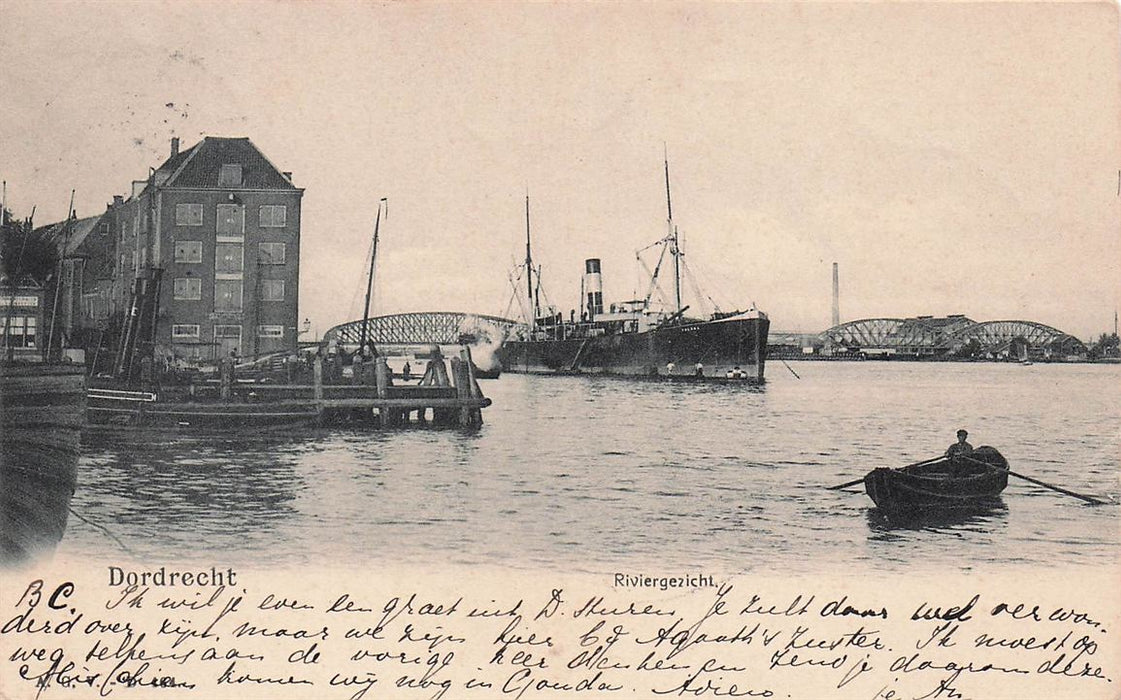 Dordrecht
Riviergezicht.
B C. Ik wil je even een groet uit D. sturen Je zult daar wel verwon-
derd over zijn, maar we zijn hier bij Agaath's zuster. Ik moest op
weg telkens aan de vorige keer denken en zend je daarom deze.
komen wij nog in Gouda. Adieu. je An